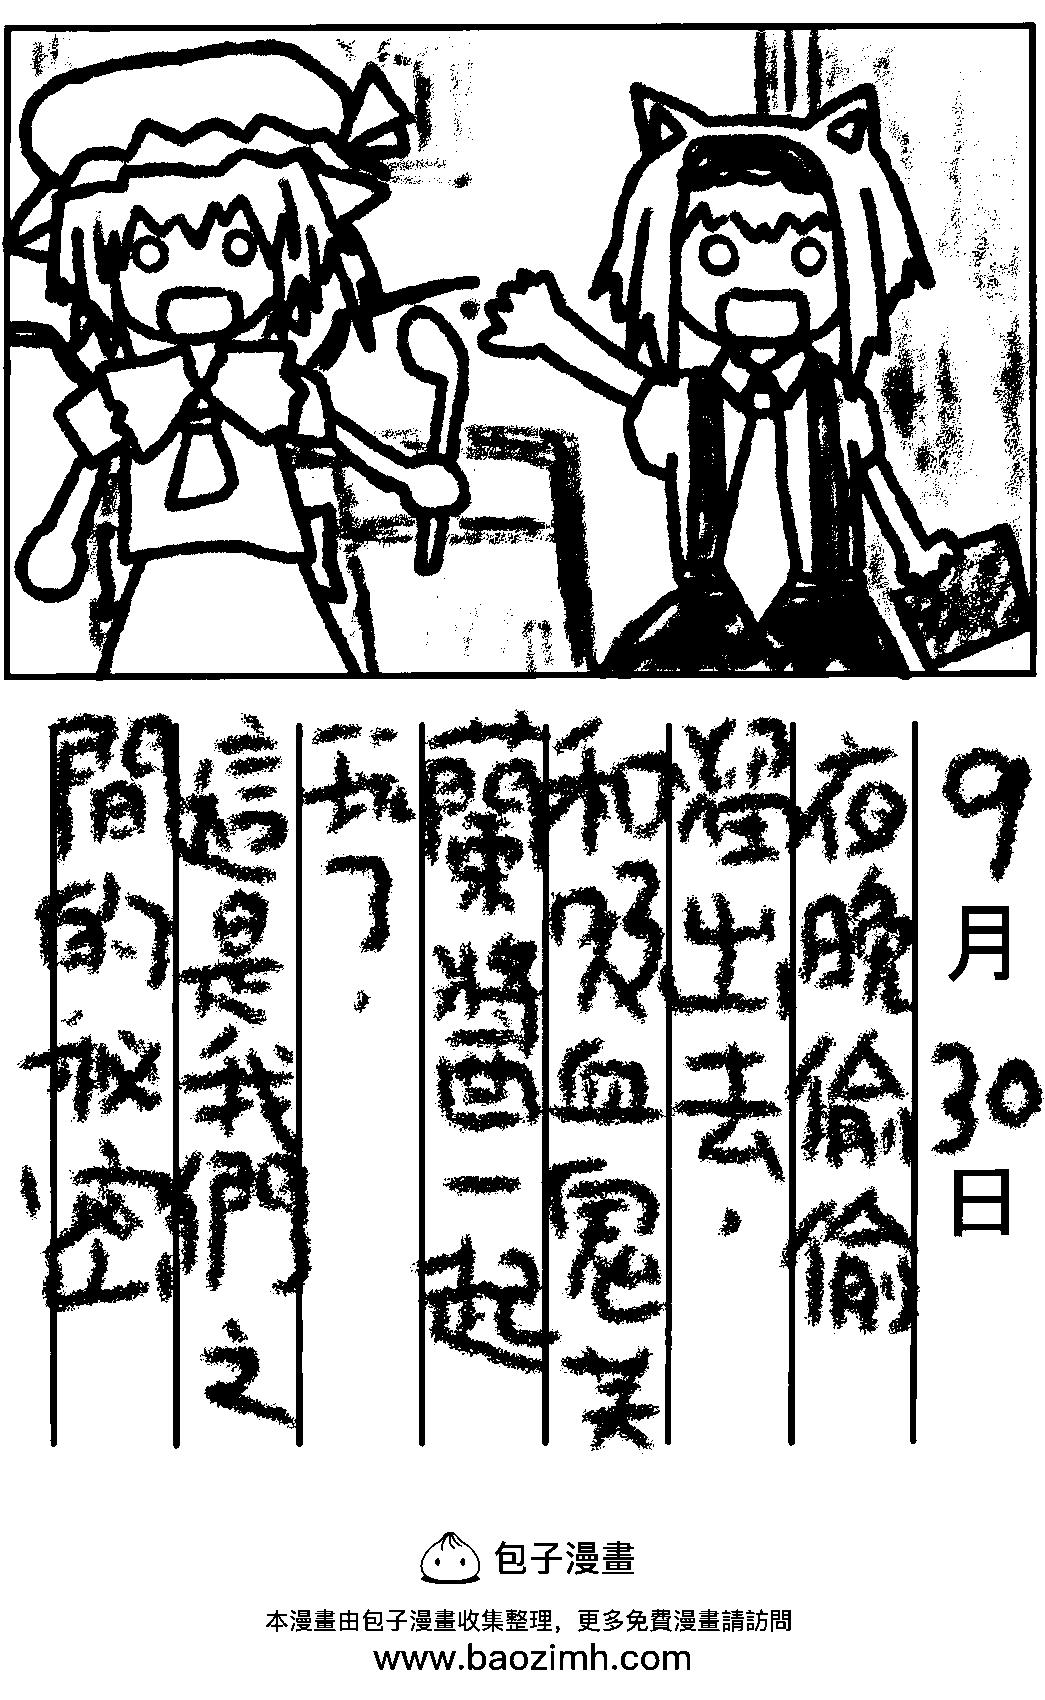 9月30日
夜晚偷偷
溜出去.
和吸血鬼芙
蘭醬一起
玩了.
這是我們之
間的秘密
包子漫畫
本漫畫由包子漫畫收集整理，更多免費漫畫請訪問
www.baozimh.com